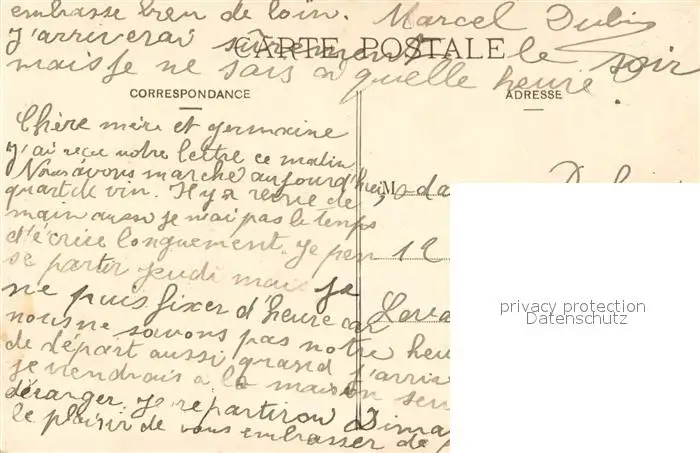 embrasse bien de loin. Marcel Dubis
J'arriverai surement le soir
mais je ne sais a quelle heure.
CARTE POSTALE
CORRESPONDANCE
ADRESSE
Chère mère et germaine
J'ai reçu votre lettre ce matin
Nous avons marche aujourd'hui,
quart de vin. Il y a revue de
main aussi je n'ai pas le temps
d'écrire longuement. Je pen
se partir jeudi mais je
ne puis fixer d'heure car
nous ne savons pas notre heu
de départ aussi quand j'arriv
je viendrais a la maison sen
déranger. Je repartirou Dima
le plaisir de vous embrasser de
Mada
12
Leva
privacy protection
Datenschutz